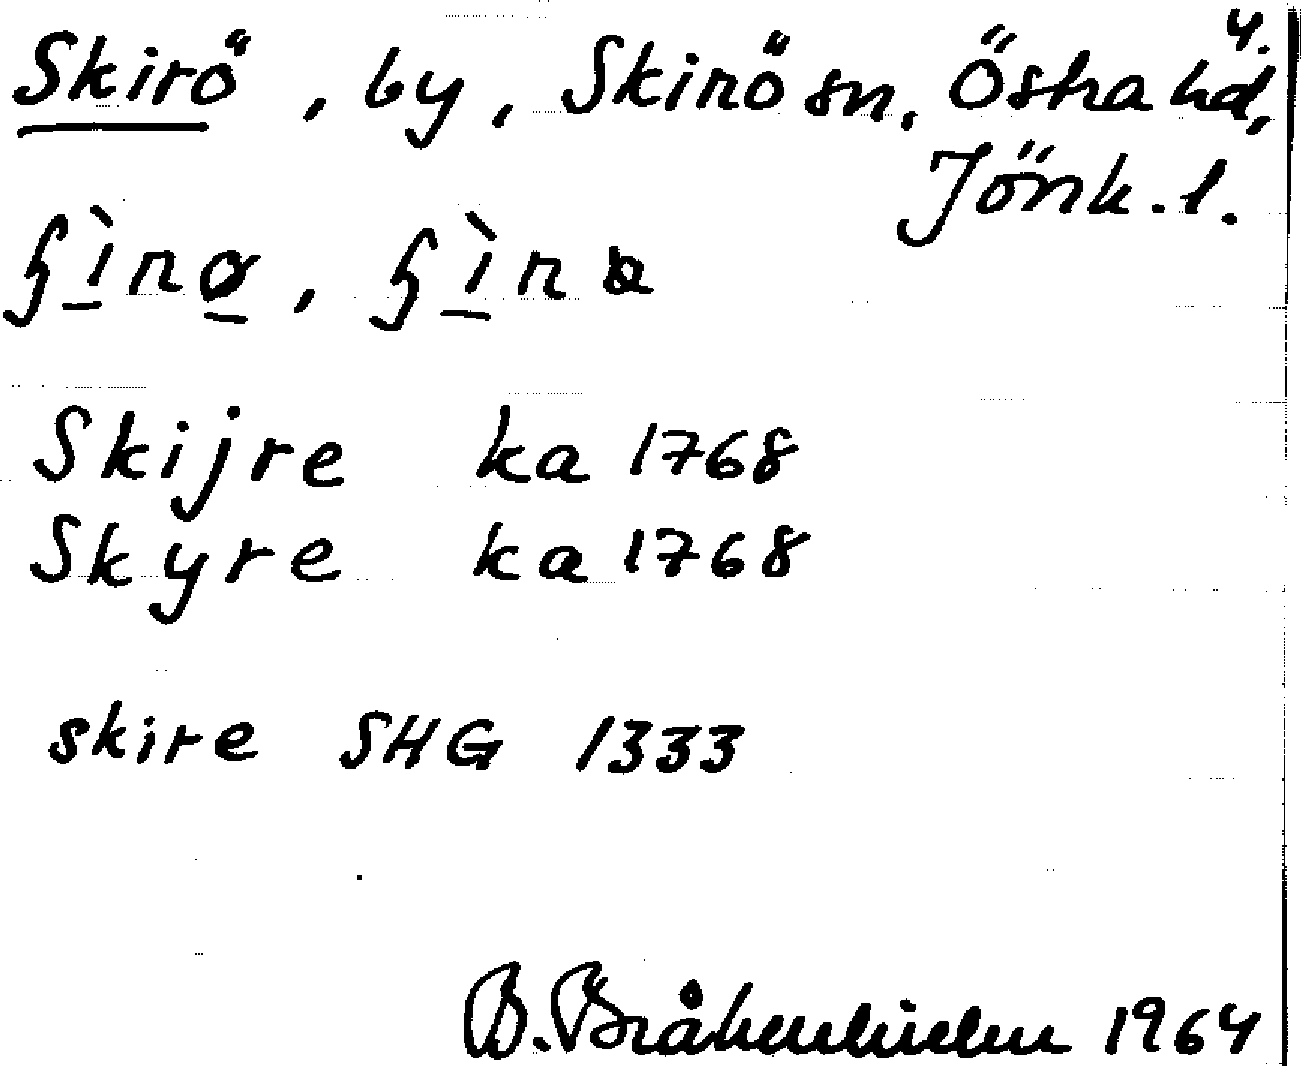 4.
Skirö, by, Skirö sn, Östra hd,
Jönk. l.
Skijre ka 1768
Skyre ka 1768
skire SHG 1333
B. Bråkenhielm 1964